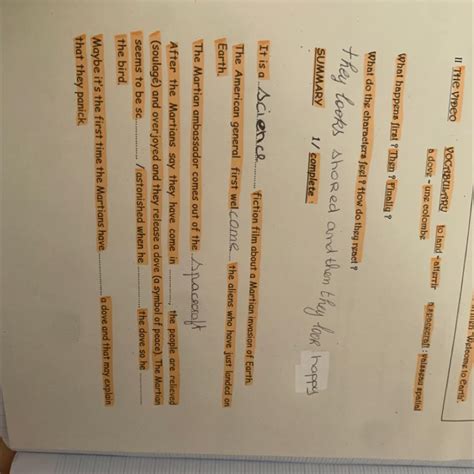 "Welcome to Earth"
II THE VIDEO VOCABULARY to land - atterrir a spacecraft : vaisseau spatial
a dove - une colombe
What happens first ? Then ? Finally ?
What do the characters feel ? How do they react ?
they looks shored and then they look happy
SUMMARY 1/ complete
It is a science fiction film about a Martian invasion of Earth.
The American general first welcome the aliens who have just landed on
Earth.
The Martian ambassador comes out of the spacecraft
After the Martians say they have come in ............, the people are relieved
(soulagé) and overjoyed and they release a dove (a symbol of peace). The Martian
seems to be sc............ / astonished when he ............ the dove so he ............
the bird.
Maybe it's the first time the Martians have ............ a dove and that may explain
that they panick.